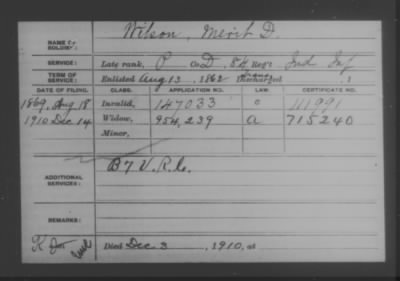 NAME OF SOLDIER: Wilson, Merit D.
SERVICE: Late rank, P Co D, 84 Reg't Ind Inf
TERM OF SERVICE: Enlisted Aug 13, 1862 Trans Discharged
DATE OF FILING. CLASS. APPLICATION NO. LAW. CERTIFICATE NO.
1869, Aug 18 Invalid, 147033 111991
1910 Dec 14 Widow, 954,239 a 715240
Minor,
ADDITIONAL SERVICES: B 7 V.R.C.
REMARKS:
Died Dec 3, 1910, at